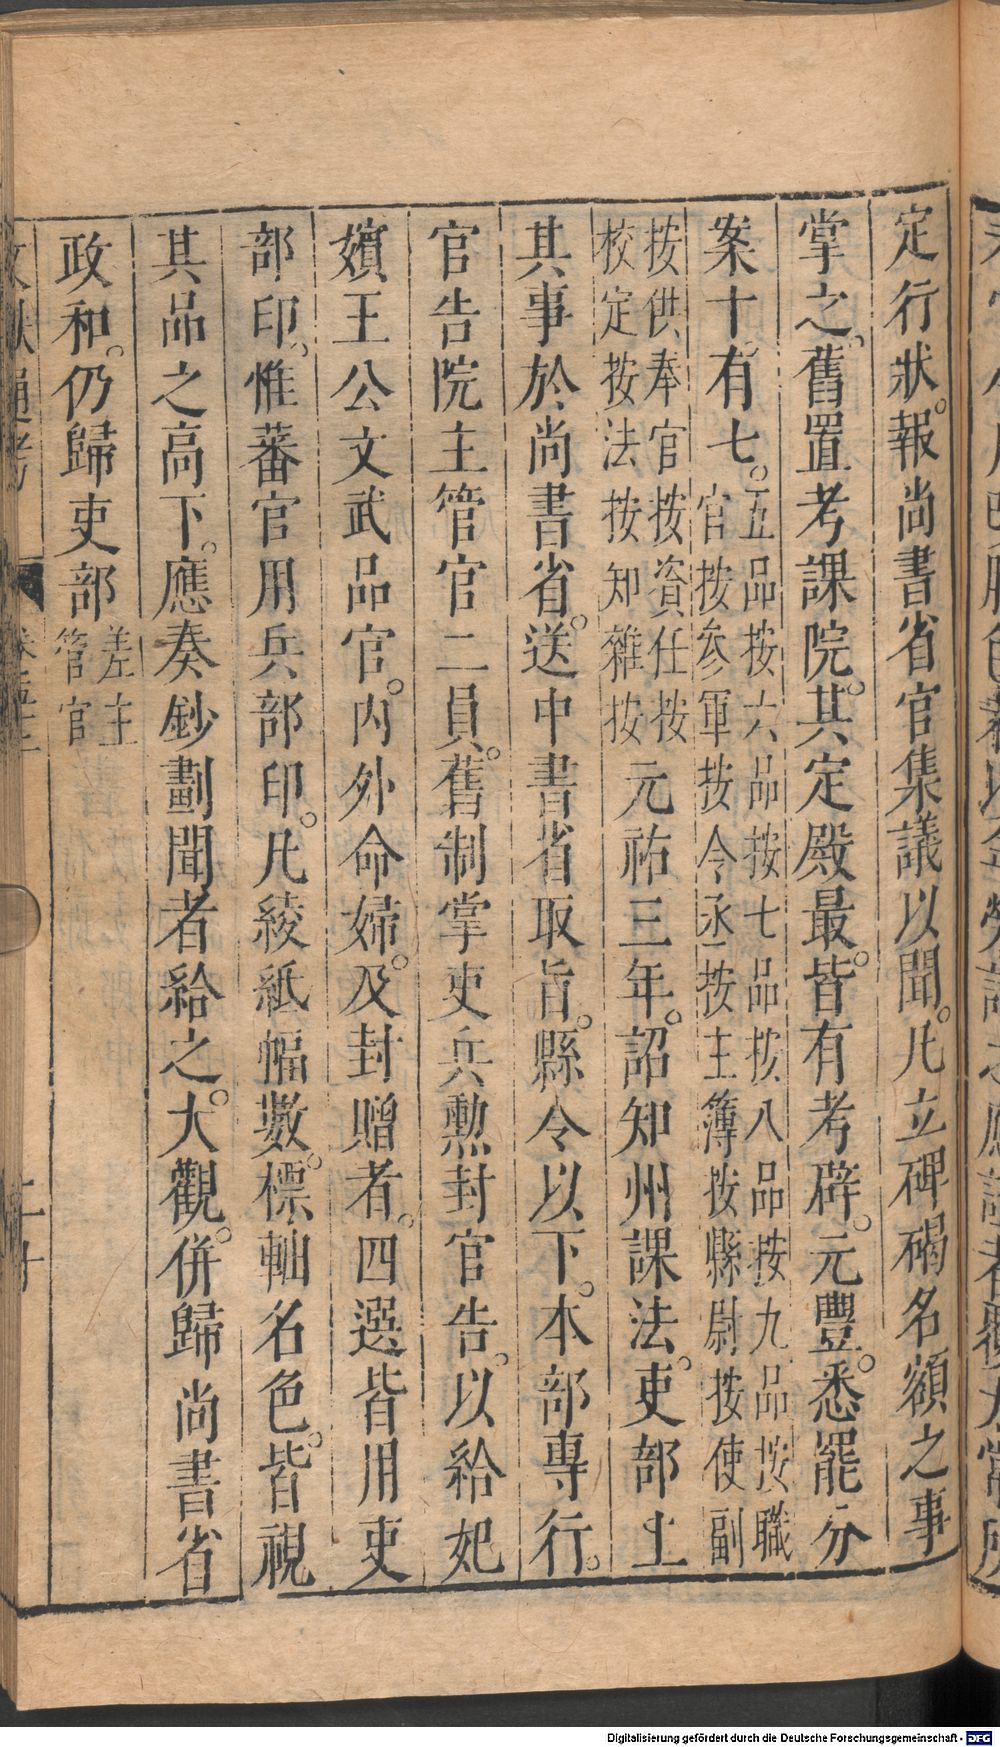 定行狀。報尚書省官集議以聞。凡立碑碣名額之事
掌之。舊置考課院。其定殿最。皆有考辟。元豐。悉罷分
案十。有七。五品按六品按七品按八品按九品按職
官按參軍按令丞按主簿按縣尉按使副
按供奉官按資任按
校定按法按知雜按元祐三年。詔知州課法。吏部上
其事於尚書省。送中書省取旨。縣令以下。本部專行。
官告院主管官二員。舊制掌吏兵勲封官告。以給妃
嬪王公文武品官。內外命婦。及封贈者。四選皆用吏
部印。惟蕃官用兵部印。凡綾紙幅數。標軸名色。皆視
其品之高下。應奏鈔劃聞者給之。大觀。併歸尚書省
政和。仍歸吏部差主
管官
Digitalisierung gefördert durch die Deutsche Forschungsgemeinschaft - DFG